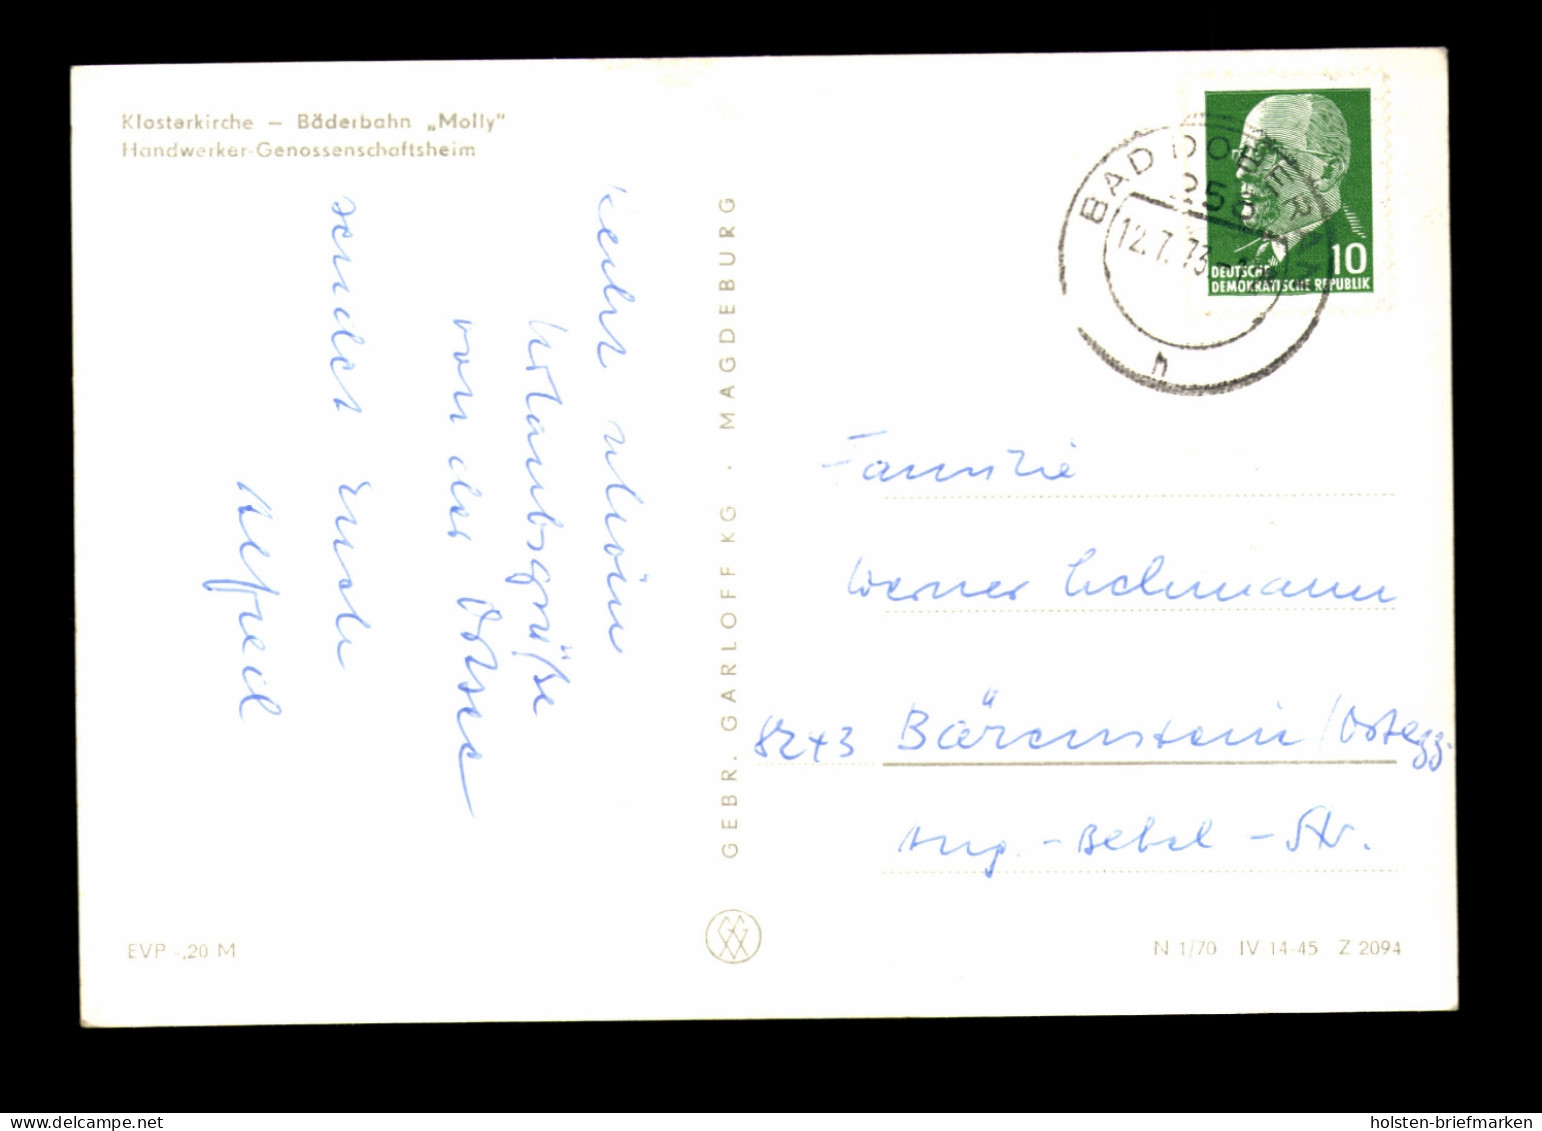 Klosterkirche – Bäderbahn „Molly"
Handwerker-Genossenschaftsheim
recht schöne
Urlaubsgrüße
von der Ostsee
sendet Euch
Alfred
GEBR. GARLOFF KG · MAGDEBURG
BAD DOBERAN
258
12.7.73
h
10
DEUTSCHE
DEMOKRATISCHE REPUBLIK
Familie
Werner Lehmann
8243 Bärenstein/Osterzg.
Aug.-Bebel-Str.
EVP -,20 M
N 1/70 IV-14-45 Z 2094
www.delcampe.net
holsten-briefmarken